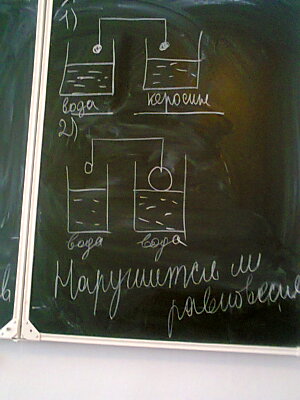 1)
вода керосин
2)
вода вода
Нарушится ли
равновесие